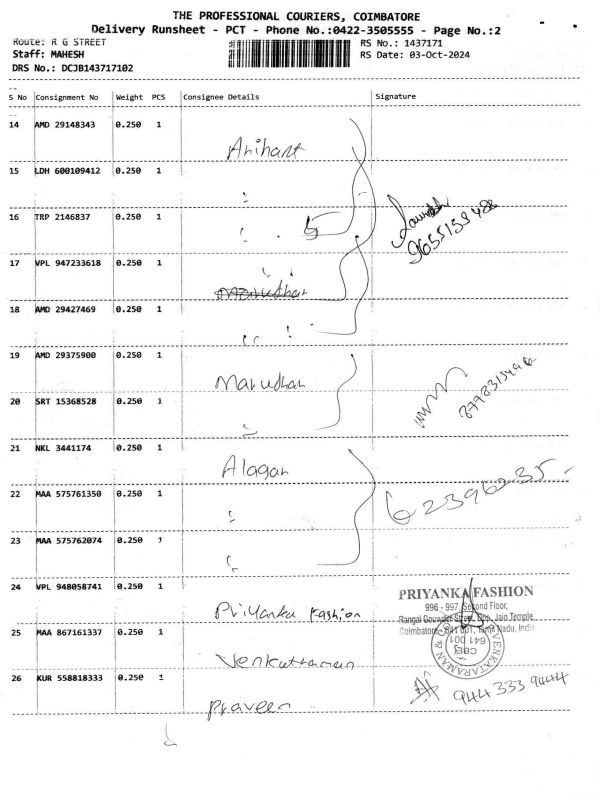 THE PROFESSIONAL COURIERS, COIMBATORE
Delivery Runsheet - PCT - Phone No.:0422-3505555 - Page No.:2
Route: R G STREET
RS No.: 1437171
Staff: MAHESH
RS Date: 03-Oct-2024
DRS No.: DCJB143717102
S No Consignment No Weight PCS Consignee Details Signature
14 AMD 29148343 0.250 1
Arihant
15 LDH 600109412 0.250 1
16 TRP 2146837 0.250 1
17 VPL 947233618 0.250 1
18 AMD 29427469 0.250 1
19 AMD 29375900 0.250 1
Marudhar
20 SRT 15368528 0.250 1
21 NKL 3441174 0.250 1
Alagar
22 MAA 575761350 0.250 1
23 MAA 575762074 0.250 1
24 VPL 948058741 0.250 1
Priyanka Fashion
PRIYANKA FASHION
996 - 997, Second Floor,
Rangai Gowder Street, Opp. Jain Temple
Coimbatore - 641 001, Tamil Nadu, India
25 MAA 867161337 0.250 1
Venkattaman
VENKATARAMAN &
CBE
641 001
26 KUR 558818333 0.250 1
944 333 9444
Praveen